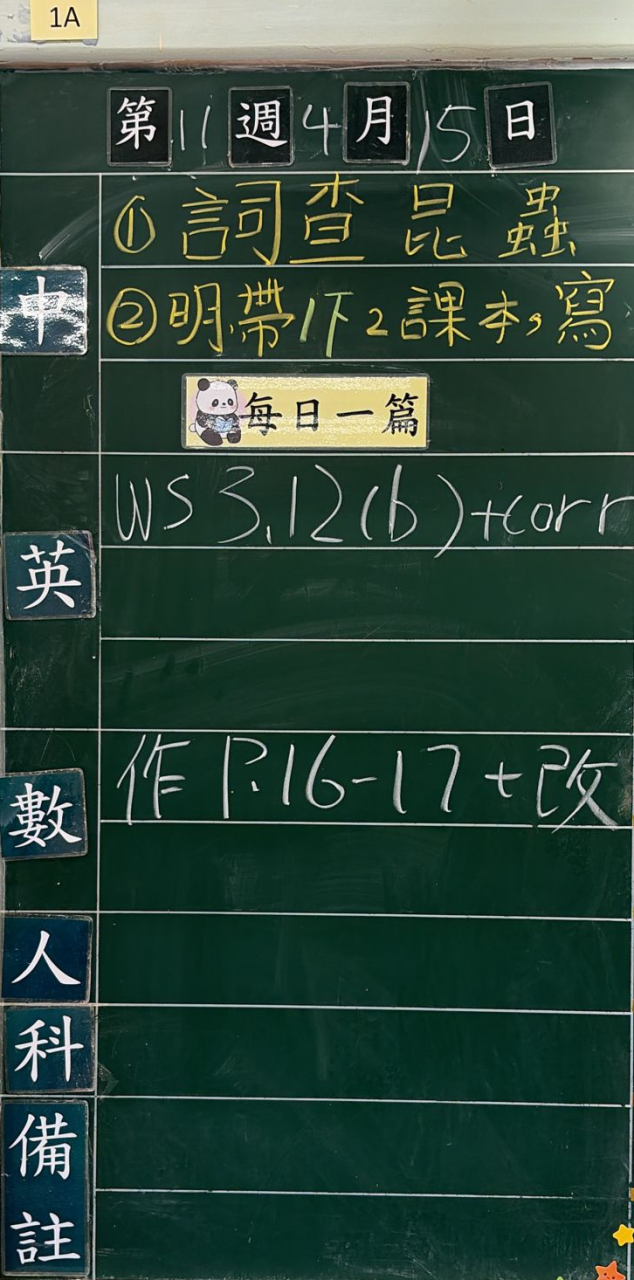 1A
第11週4月15日
①詞查昆蟲
中
②明帶1下2課本,寫
每日一篇
WS 3.12(b)+corr
英
作 P.16-17+改
數
人
科
備
註